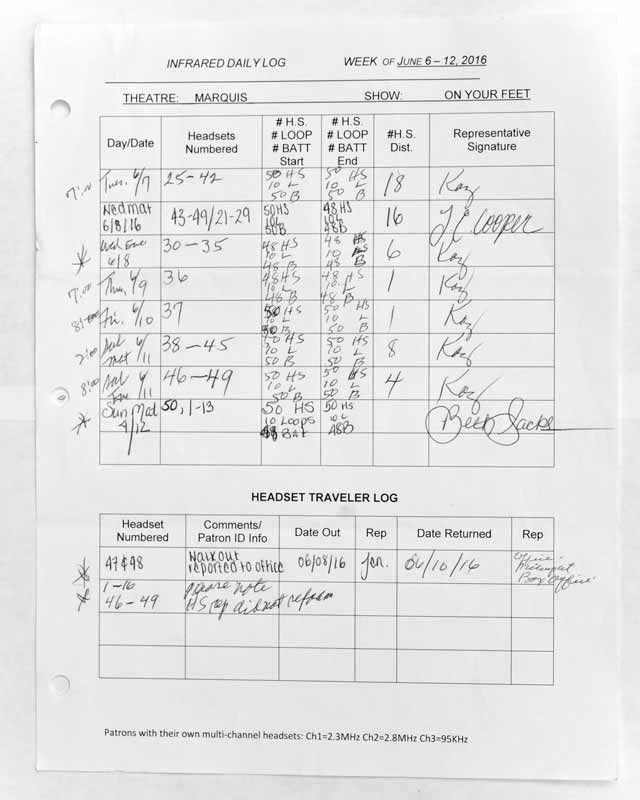 INFRARED DAILY LOG WEEK OF JUNE 6 – 12, 2016
THEATRE: MARQUIS SHOW: ON YOUR FEET
Day/Date Headsets Numbered # H.S. # LOOP # BATT Start # H.S. # LOOP # BATT End #H.S. Dist. Representative Signature
7:00 Tues. 6/7 25-42 50 HS 10 L 50 B 50 HS 10 L 50 B 18 Kaz
Wed Mat 6/8/16 43-49/21-29 50HS 10L 50B 48HS 10L 48B 16 J E Cooper
* Wed Eve 6/8 30-35 48 HS 10 L 48 B 48 HS 10 L 48 B 6 Kaz
7:00 Thu, 6/9 36 48 HS 10 L 48 B 48 HS 10 L 48 B 1 Kaz
8:00 Fri. 6/10 37 50 HS 10 L 50 B 50 HS 10 L 50 B 1 Kaz
2:00 Sat Mat 6/11 38-45 50 HS 10 L 50 B 50 HS 10 L 50 B 8 Kaz
8:00 Sat Eve 6/11 46-49 50 HS 10 L 50 B 50 HS 10 L 50 B 4 Kaz
* Sun Mat 6/12 50, 1-13 50 HS 10 Loops 48 BAT 50 HS 10 L 48B Beth Jacks
HEADSET TRAVELER LOG
Headset Numbered Comments/ Patron ID Info Date Out Rep Date Returned Rep
* 47&48 Walkout reported to office 06/08/16 Jen. 06/10/16 Office Box Office
* 1-16 please note
46-49 HS rep did not
Patrons with their own multi-channel headsets: Ch1=2.3MHz Ch2=2.8MHz Ch3=95KHz